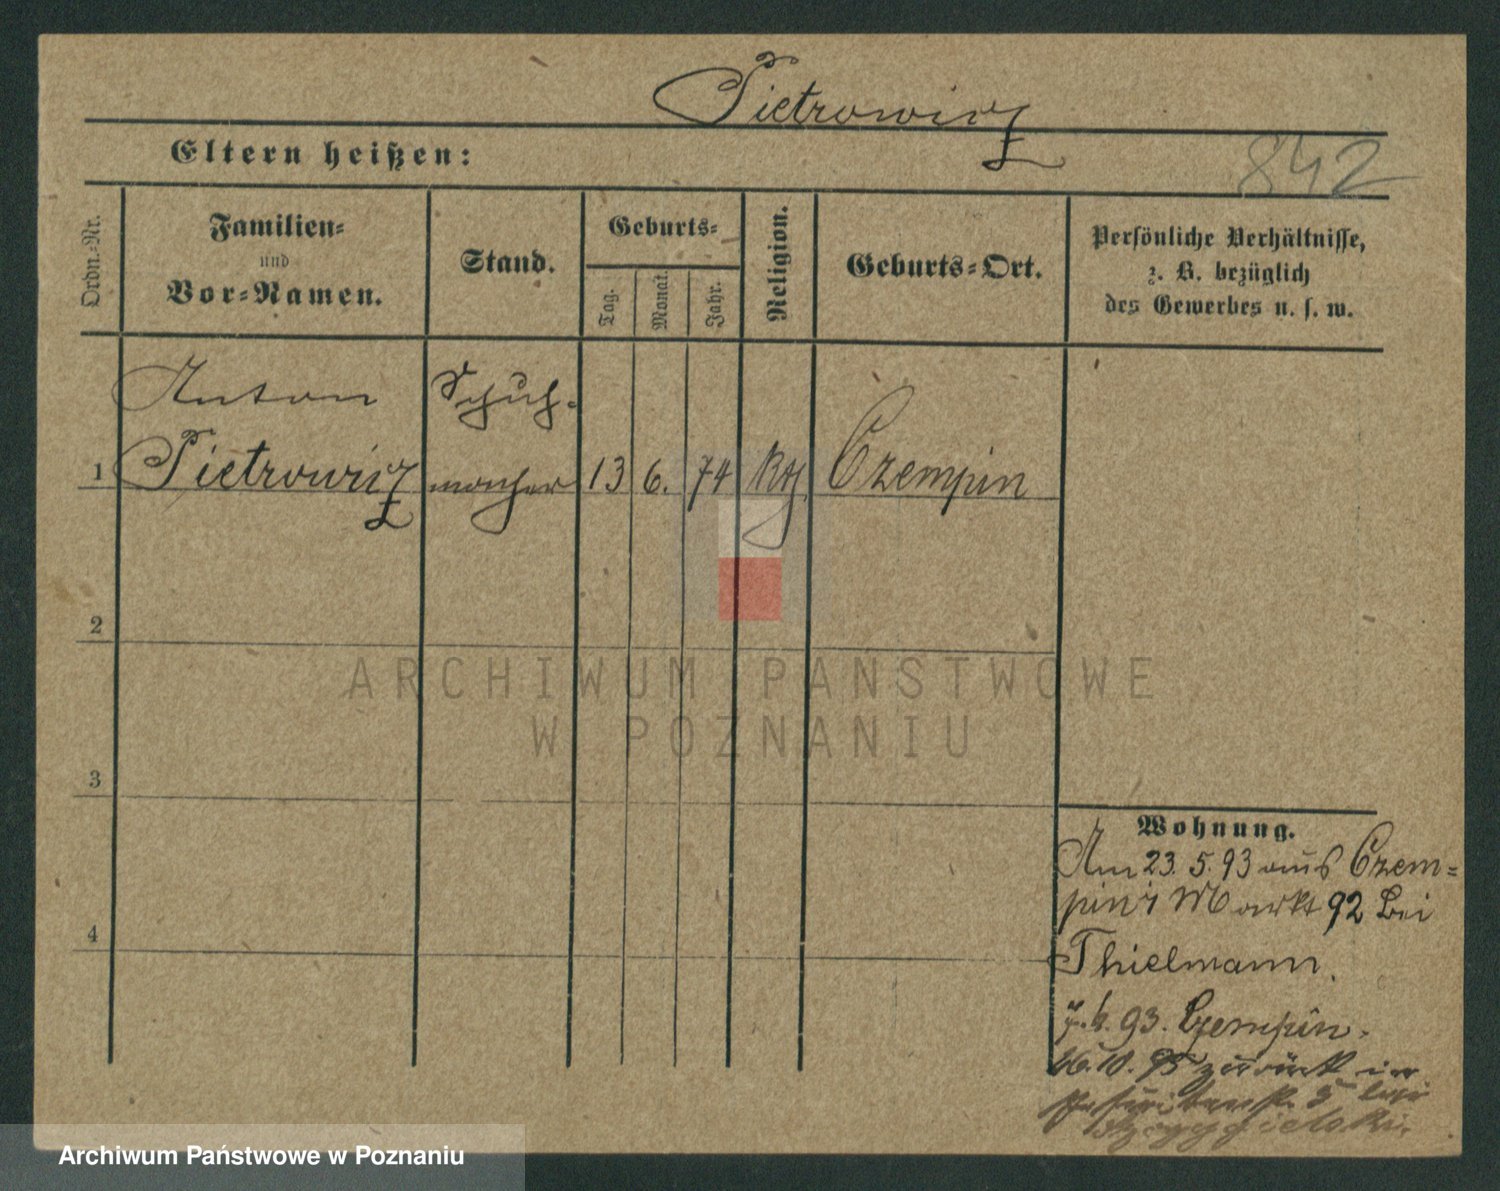 Pietrowicz
Eltern heißen:
842
Ordn.-Nr.
Familien-
und
Vor-Namen.
Stand.
Geburts-
Tag.
Monat.
Jahr.
Religion.
Geburts-Ort.
Persönliche Verhältnisse,
z. B. bezüglich
des Gewerbes u. s. w.
Anton Schuh-
1 Pietrowicz macher 13 6. 74 kth Czempin
2
3
4
Wohnung.
Am 23. 5. 93 aus Czem-
pin Markt 92 bei
Thielmann.
93. Czempin.
16. 10. 95 zurück in
Jesuitenstr. 5 bei
ARCHIWUM PAŃSTWOWE
W POZNANIU
Archiwum Państwowe w Poznaniu